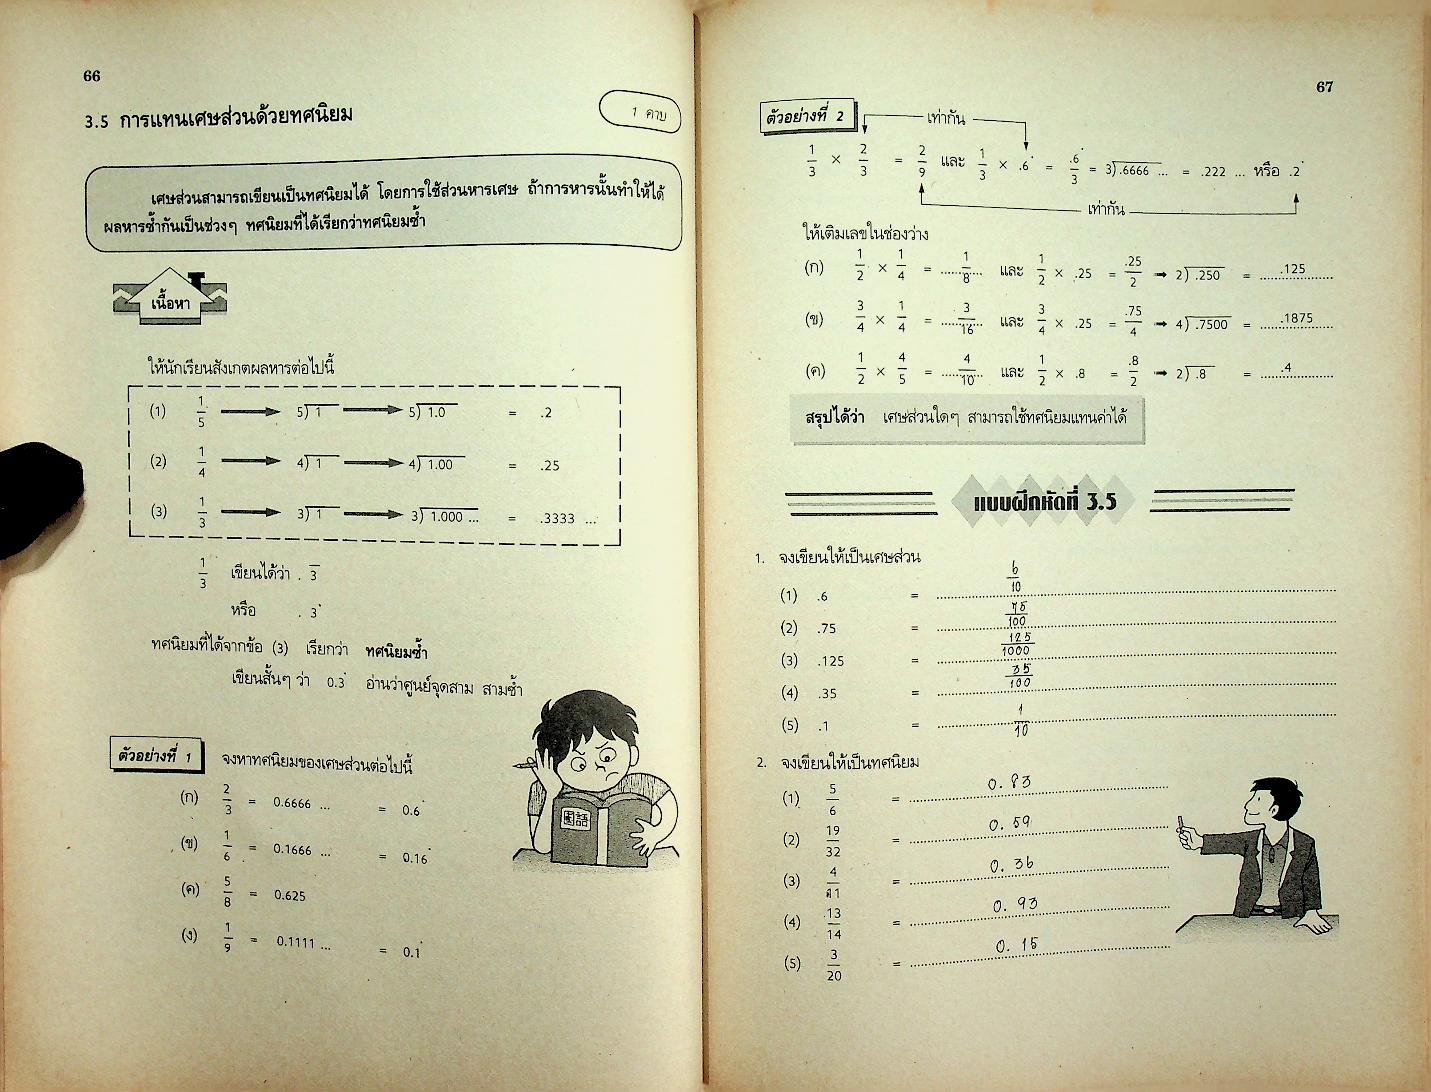 66
3.5 การแทนเศษส่วนด้วยทศนิยม
1 คาบ
เศษส่วนสามารถเขียนเป็นทศนิยมได้ โดยการใช้ส่วนหารเศษ ถ้าการหารนั้นทำให้ได้
ผลหารซ้ำกันเป็นช่วงๆ ทศนิยมที่ได้เรียกว่าทศนิยมซ้ำ
เนื้อหา
ให้นักเรียนสังเกตผลหารต่อไปนี้
(1) 1/5 → 5) 1 → 5) 1.0 = .2
(2) 1/4 → 4) 1 → 4) 1.00 = .25
(3) 1/3 → 3) 1 → 3) 1.000 ... = .3333 ...
1/3 เขียนได้ว่า . 3̅
หรือ . 3̇
ทศนิยมที่ได้จากข้อ (3) เรียกว่า ทศนิยมซ้ำ
เขียนสั้นๆ ว่า 0.3̇ อ่านว่าศูนย์จุดสาม สามซ้ำ
ตัวอย่างที่ 1 จงหาทศนิยมของเศษส่วนต่อไปนี้
(ก) 2/3 = 0.6666 ... = 0.6̇
(ข) 1/6 = 0.1666 ... = 0.16̇
(ค) 5/8 = 0.625
(ง) 1/9 = 0.1111 ... = 0.1̇
國語
67
ตัวอย่างที่ 2
เท่ากัน
1/3 × 2/3 = 2/9 และ 1/3 × .6̇ = .6̇/3 = 3) .6666 ... = .222 ... หรือ .2̇
เท่ากัน
ให้เติมเลขในช่องว่าง
(ก) 1/2 × 1/4 = ......1/8...... และ 1/2 × .25 = .25/2 → 2) .250 = .......125.......
(ข) 3/4 × 1/4 = ......3/16...... และ 3/4 × .25 = .75/4 → 4) .7500 = .......1875.......
(ค) 1/2 × 4/5 = ......4/10...... และ 1/2 × .8 = .8/2 → 2) .8 = .......4.......
สรุปได้ว่า เศษส่วนใดๆ สามารถใช้ทศนิยมแทนค่าได้
แบบฝึกหัดที่ 3.5
1. จงเขียนให้เป็นเศษส่วน
(1) .6 = 6/10
(2) .75 = 75/100
(3) .125 = 125/1000
(4) .35 = 35/100
(5) .1 = 1/10
2. จงเขียนให้เป็นทศนิยม
(1) 5/6 = 0.83
(2) 19/32 = 0.59
(3) 4/11 = 0.36
(4) 13/14 = 0.93
(5) 3/20 = 0.15